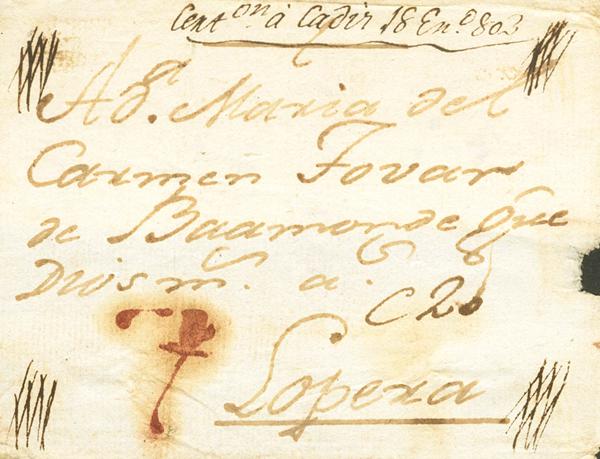 Cent.on à Cadiz 18 En.o 803
A d.a Maria del
Carmen Tovar
de Baamonde que
Dios m.s a.s
C 20
7
Lopera